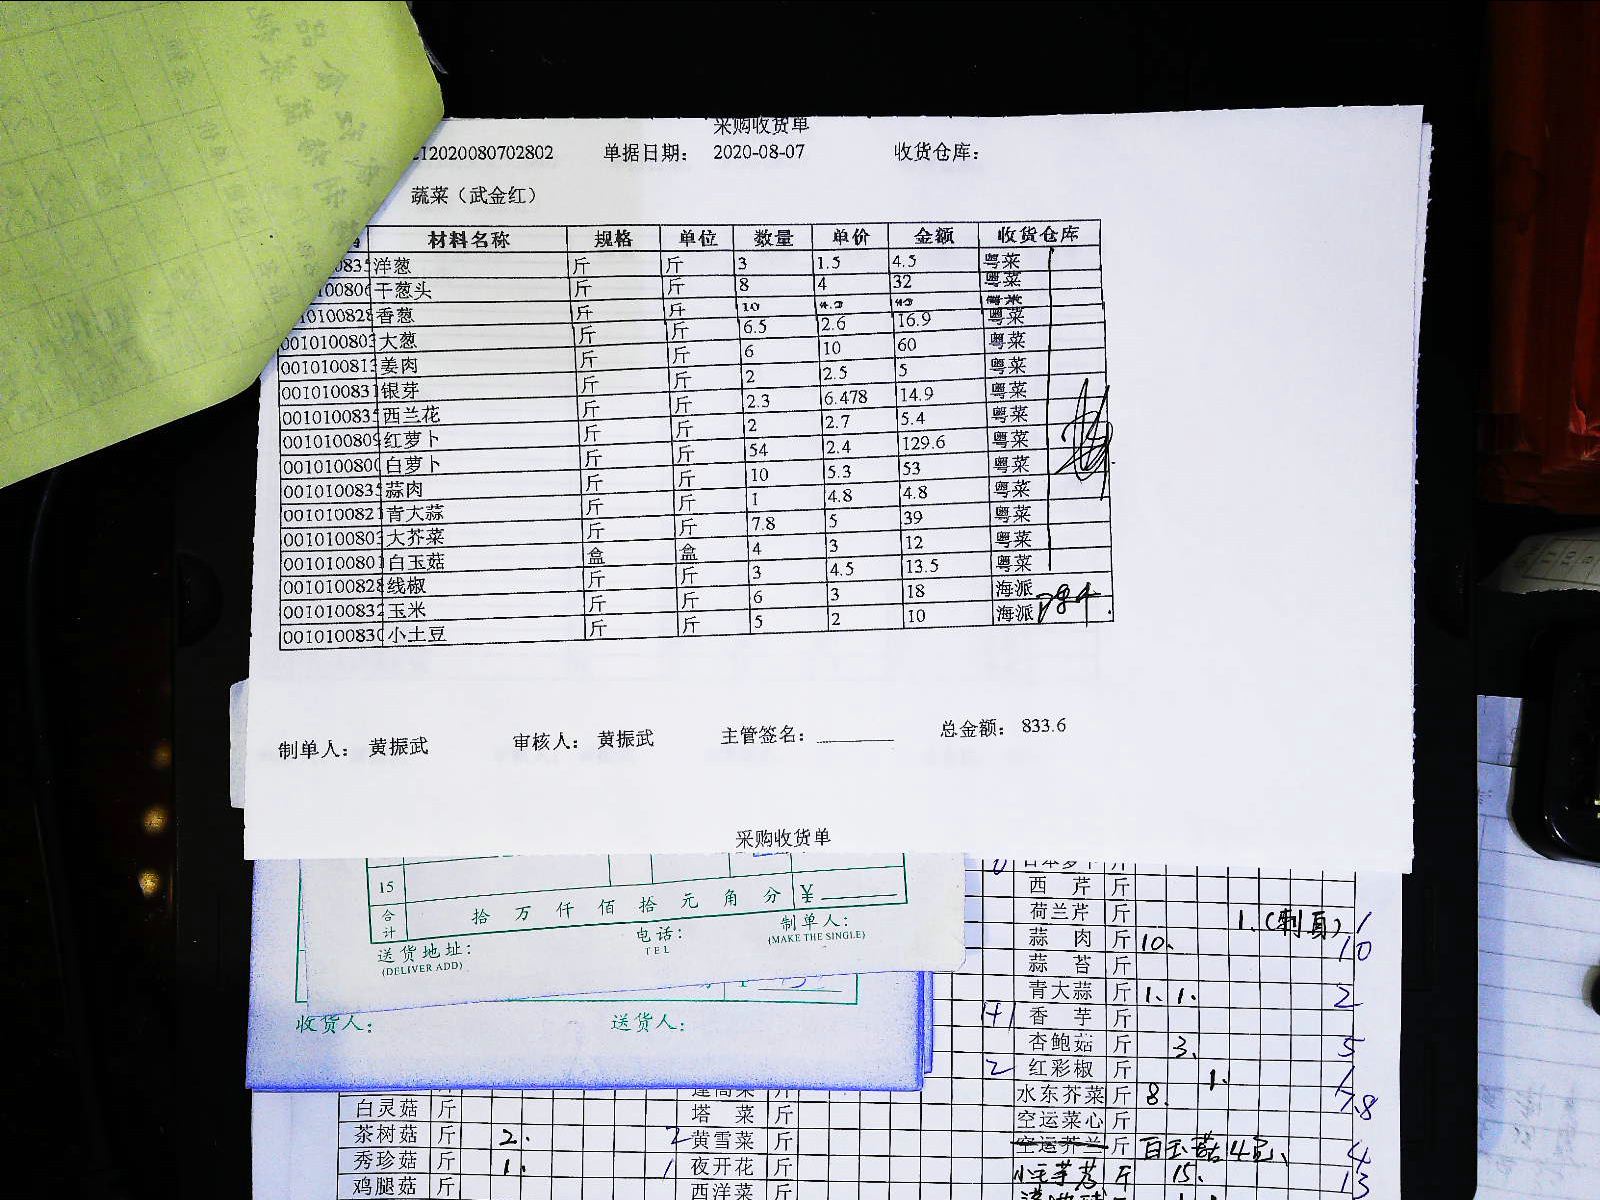 采购收货单
12020080702802 单据日期： 2020-08-07 收货仓库：
蔬菜（武金红）
材料名称 规格 单位 数量 单价 金额 收货仓库
洋葱 斤 斤 3 1.5 4.5 粤菜
干葱头 斤 斤 8 4 32 粤菜
香葱 斤 斤 10 粤菜
0010100803 大葱 斤 斤 6.5 2.6 16.9 粤菜
0010100813 姜肉 斤 斤 6 10 60 粤菜
0010100831 银芽 斤 斤 2 2.5 5 粤菜
001010083 西兰花 斤 斤 2.3 6.478 14.9 粤菜
0010100809 红萝卜 斤 斤 2 2.7 5.4 粤菜
0010100800 白萝卜 斤 斤 54 2.4 129.6 粤菜
001010083 蒜肉 斤 斤 10 5.3 53 粤菜
0010100821 青大蒜 斤 斤 1 4.8 4.8 粤菜
0010100803 大芥菜 斤 斤 7.8 5 39 粤菜
0010100801 白玉菇 盒 盒 4 3 12 粤菜
0010100828 线椒 斤 斤 3 4.5 13.5 粤菜
0010100832 玉米 斤 斤 6 3 18 海派
0010100830 小土豆 斤 斤 5 2 10 海派
制单人： 黄振武 审核人： 黄振武 主管签名： 总金额： 833.6
采购收货单
15
合计 拾 万 仟 佰 拾 元 角 分 ¥
送货地址： 电话： 制单人：
(DELIVER ADD) TEL (MAKE THE SINGLE)
收货人： 送货人：
西芹 斤
荷兰芹 斤 1. 1
蒜肉 斤 10. 10
蒜苔 斤
青大蒜 斤 1. 1. 2
香芋 斤
杏鲍菇 斤 3. 5
2 红彩椒 斤 1. 1
水东芥菜 斤 8. 7.8
空运菜心 斤
空运芥兰 斤 白玉菇4盒、 4
斤 15. 13
白灵菇 斤
茶树菇 斤 2. 2
秀珍菇 斤 1. 1
鸡腿菇 斤
塔菜 斤
黄雪菜 斤
夜开花 斤
西洋菜 斤